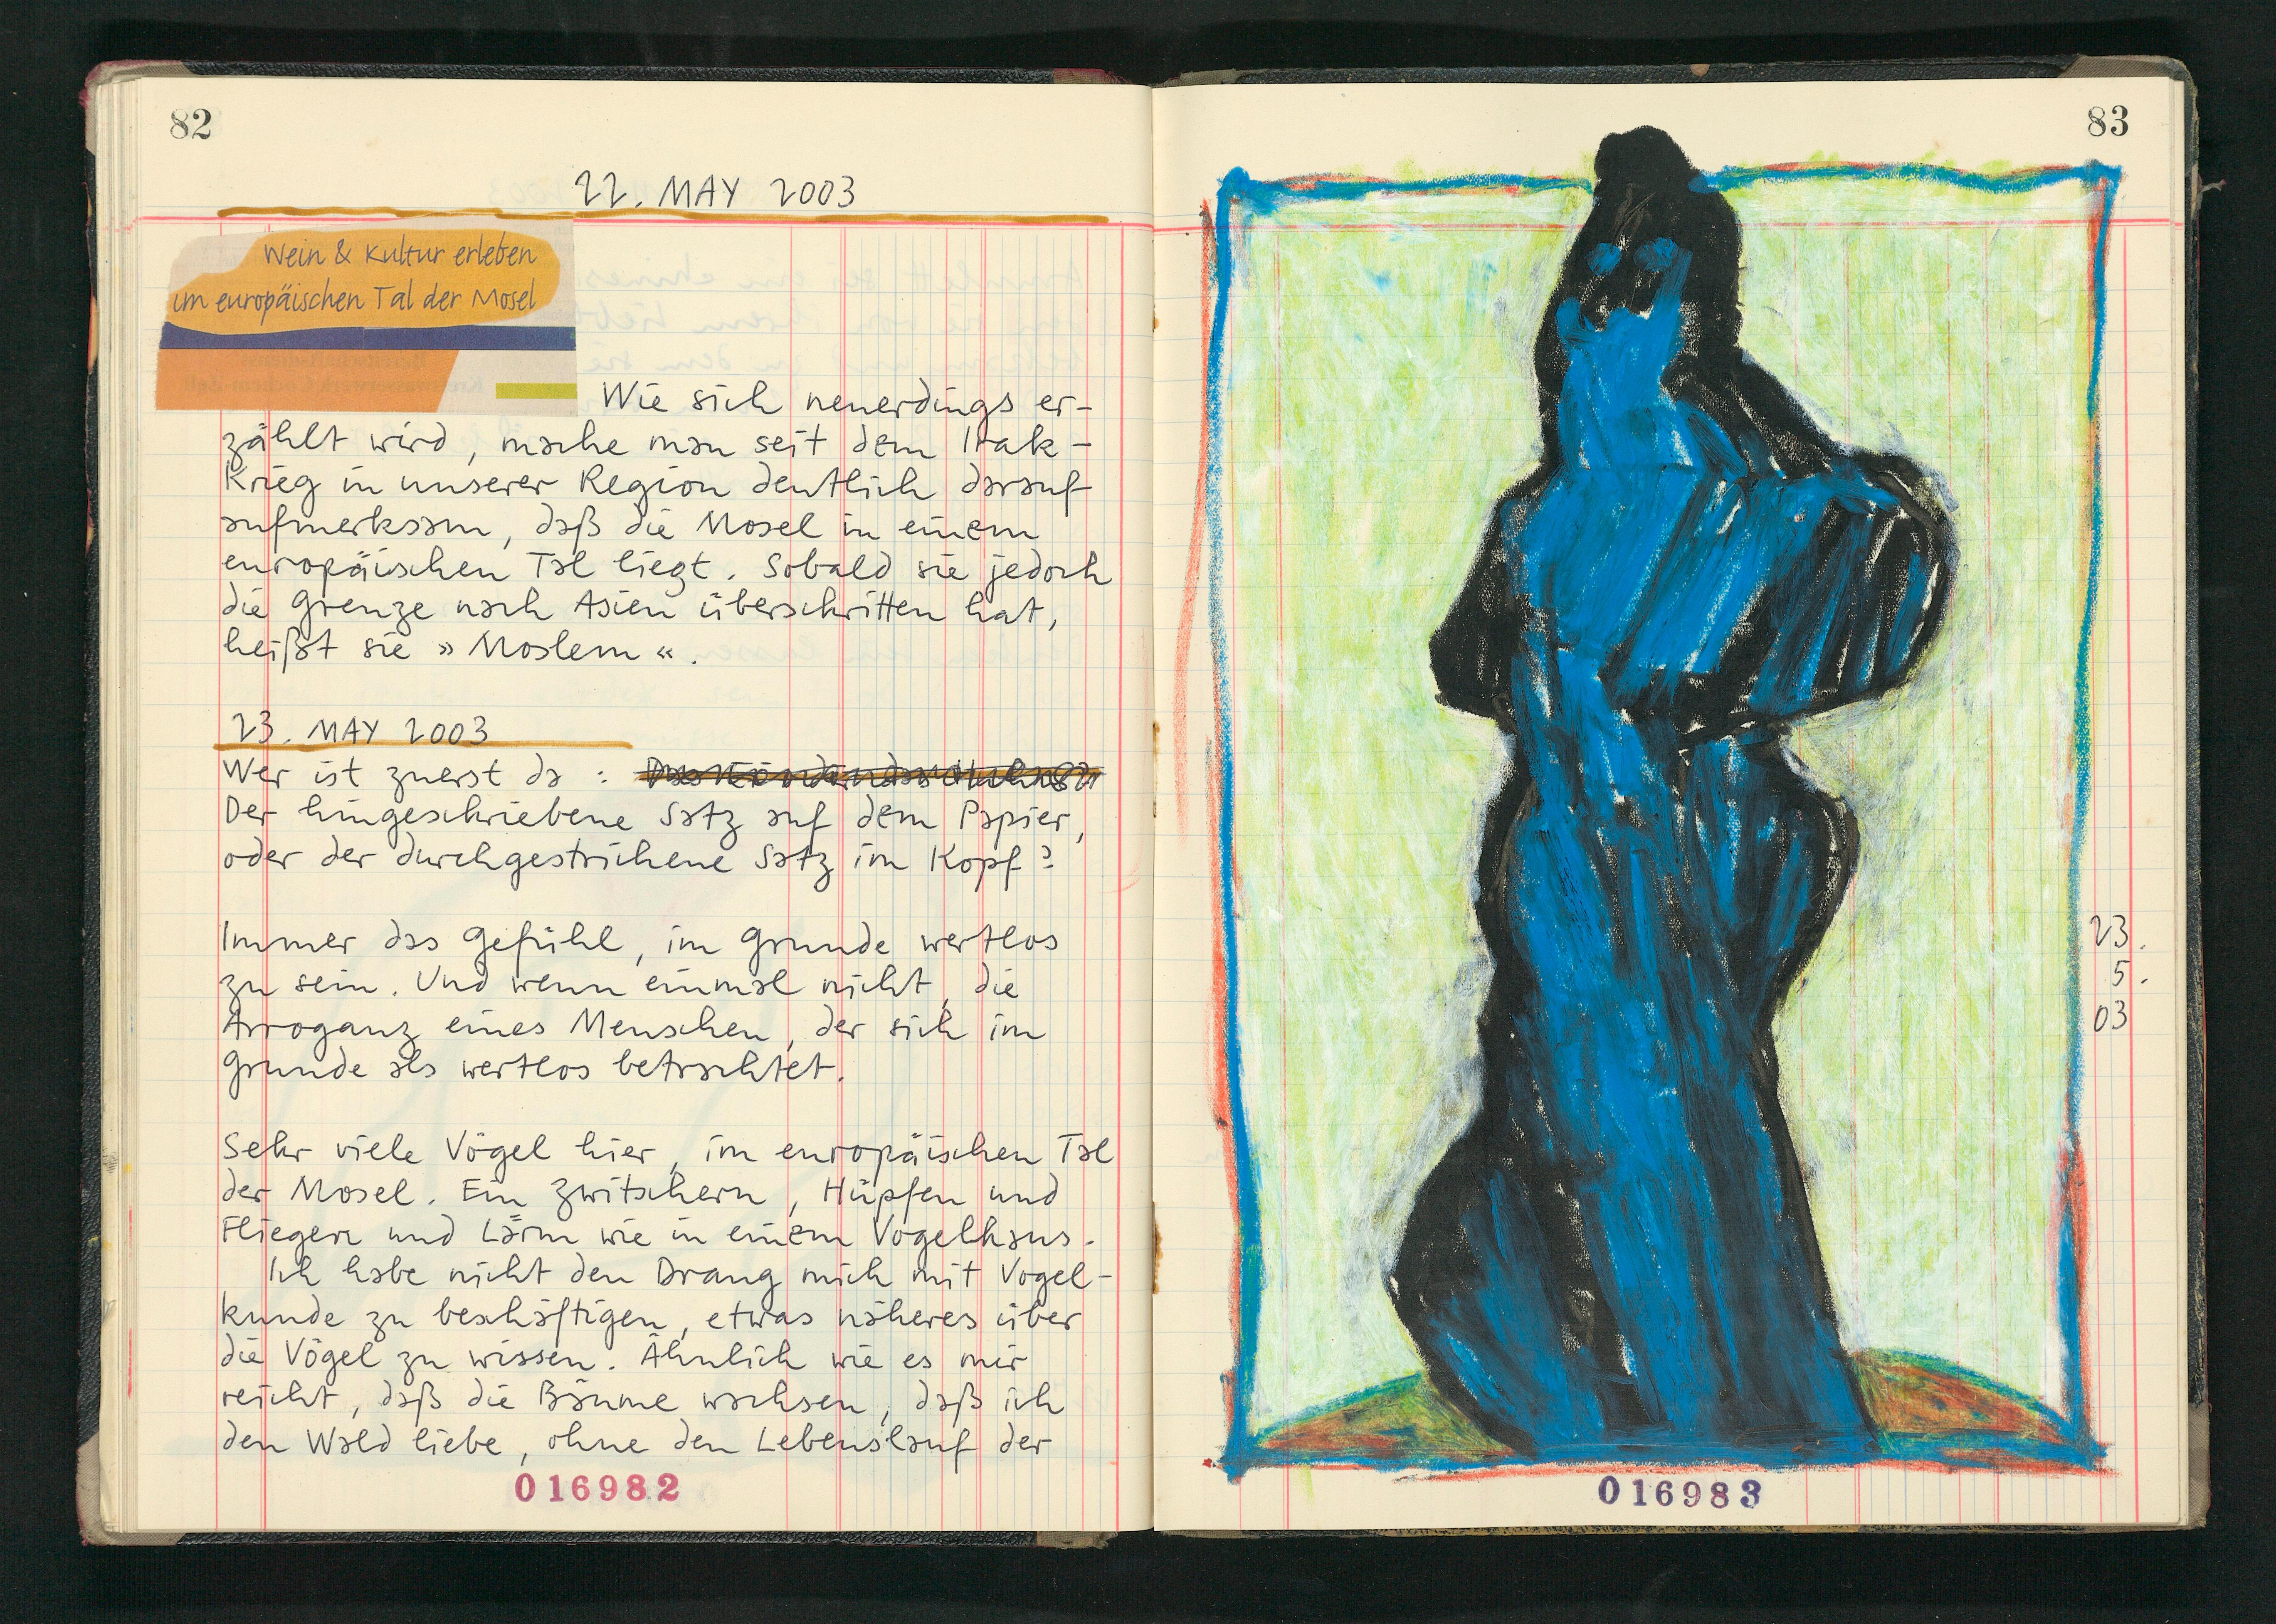 82
22. MAY 2003
Wein & Kultur erleben
im europäischen Tal der Mosel
Wie sich neuerdings er-
zählt wird, mache man seit dem Irak-
Krieg in unserer Region deutlich darauf
aufmerksam, daß die Mosel in einem
europäischen Tal liegt. Sobald sie jedoch
die Grenze nach Asien überschritten hat,
heißt sie » Moslem «.
23. MAY 2003
Wer ist zuerst da :
Der hingeschriebene Satz auf dem Papier,
oder der durchgestrichene Satz im Kopf?
Immer das Gefühl, im Grunde wertlos
zu sein. Und wenn einmal nicht, die
Arroganz eines Menschen, der sich im
Grunde als wertlos betrachtet.
Sehr viele Vögel hier, im europäischen Tal
der Mosel. Ein Zwitschern, Hüpfen und
Fliegen und Lärm wie in einem Vogelhaus.
Ich habe nicht den Drang mich mit Vogel-
kunde zu beschäftigen, etwas näheres über
die Vögel zu wissen. Ähnlich wie es mir
reicht, daß die Bäume wachsen, daß ich
den Wald liebe, ohne den Lebenslauf der
016982
83
23.
5.
03
016983